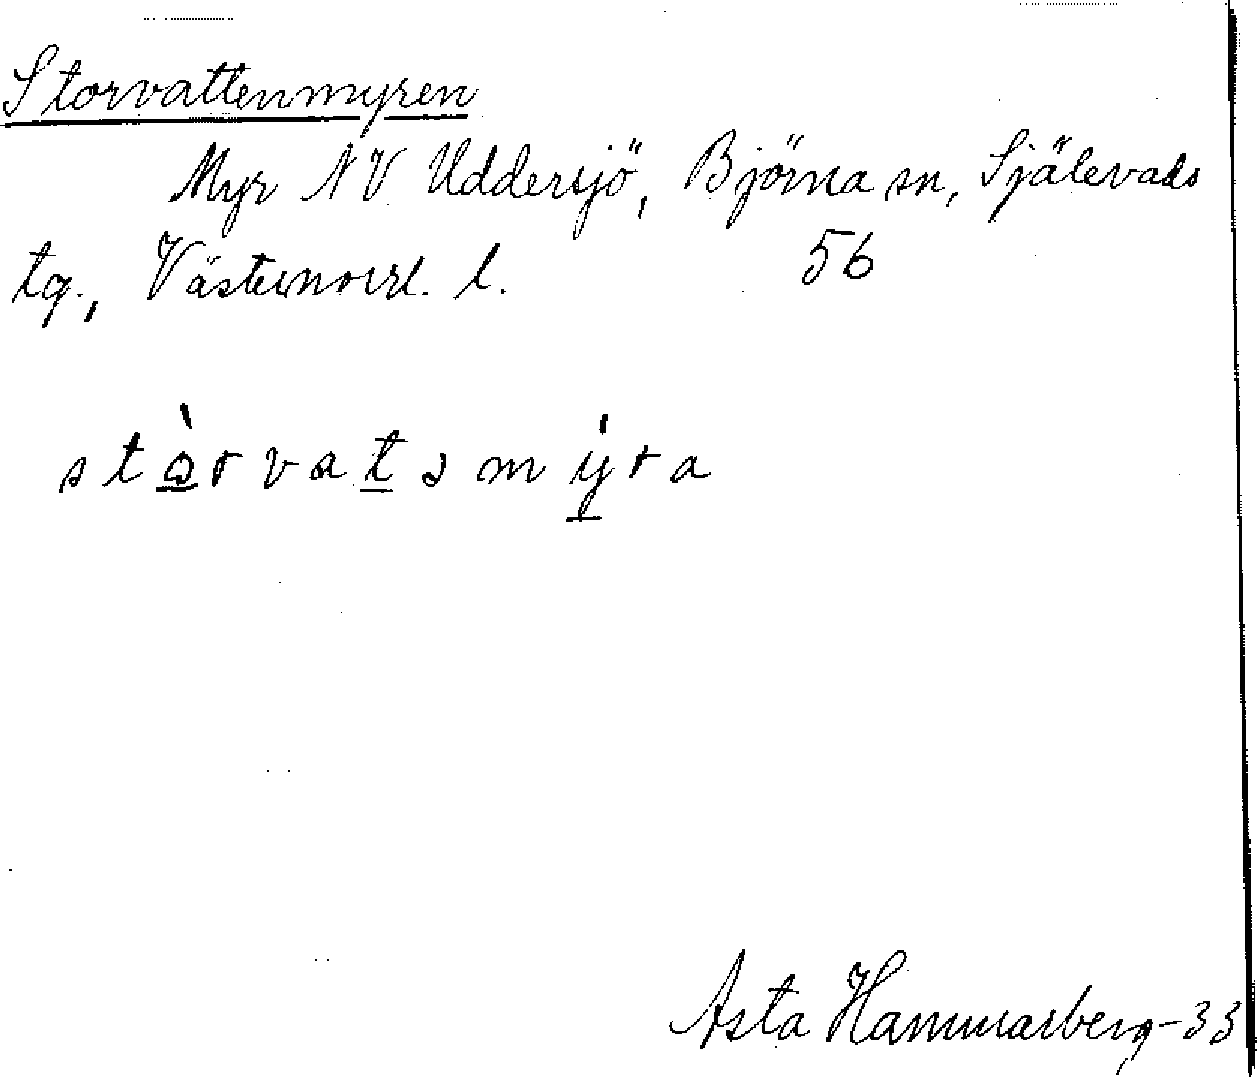 Storvattenmyren
Myr NV Uddersjö, Björna sn, Själevads
tg., Västernorrl. l. 56
stɔ̀rvatəmýra
Asta Hammarberg-33